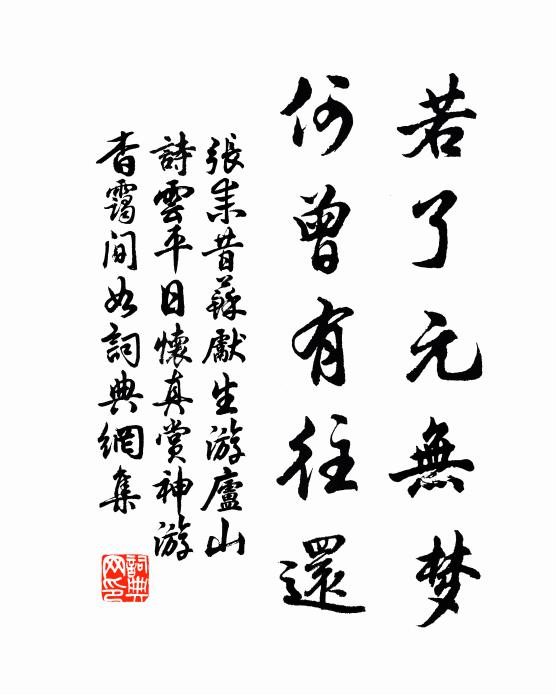 若了元無梦
何曾有往還
張耒昔蘇獻生游廬山
詩雲平日懷真赏神游
杳靄间如詞典網集
詞典
网印